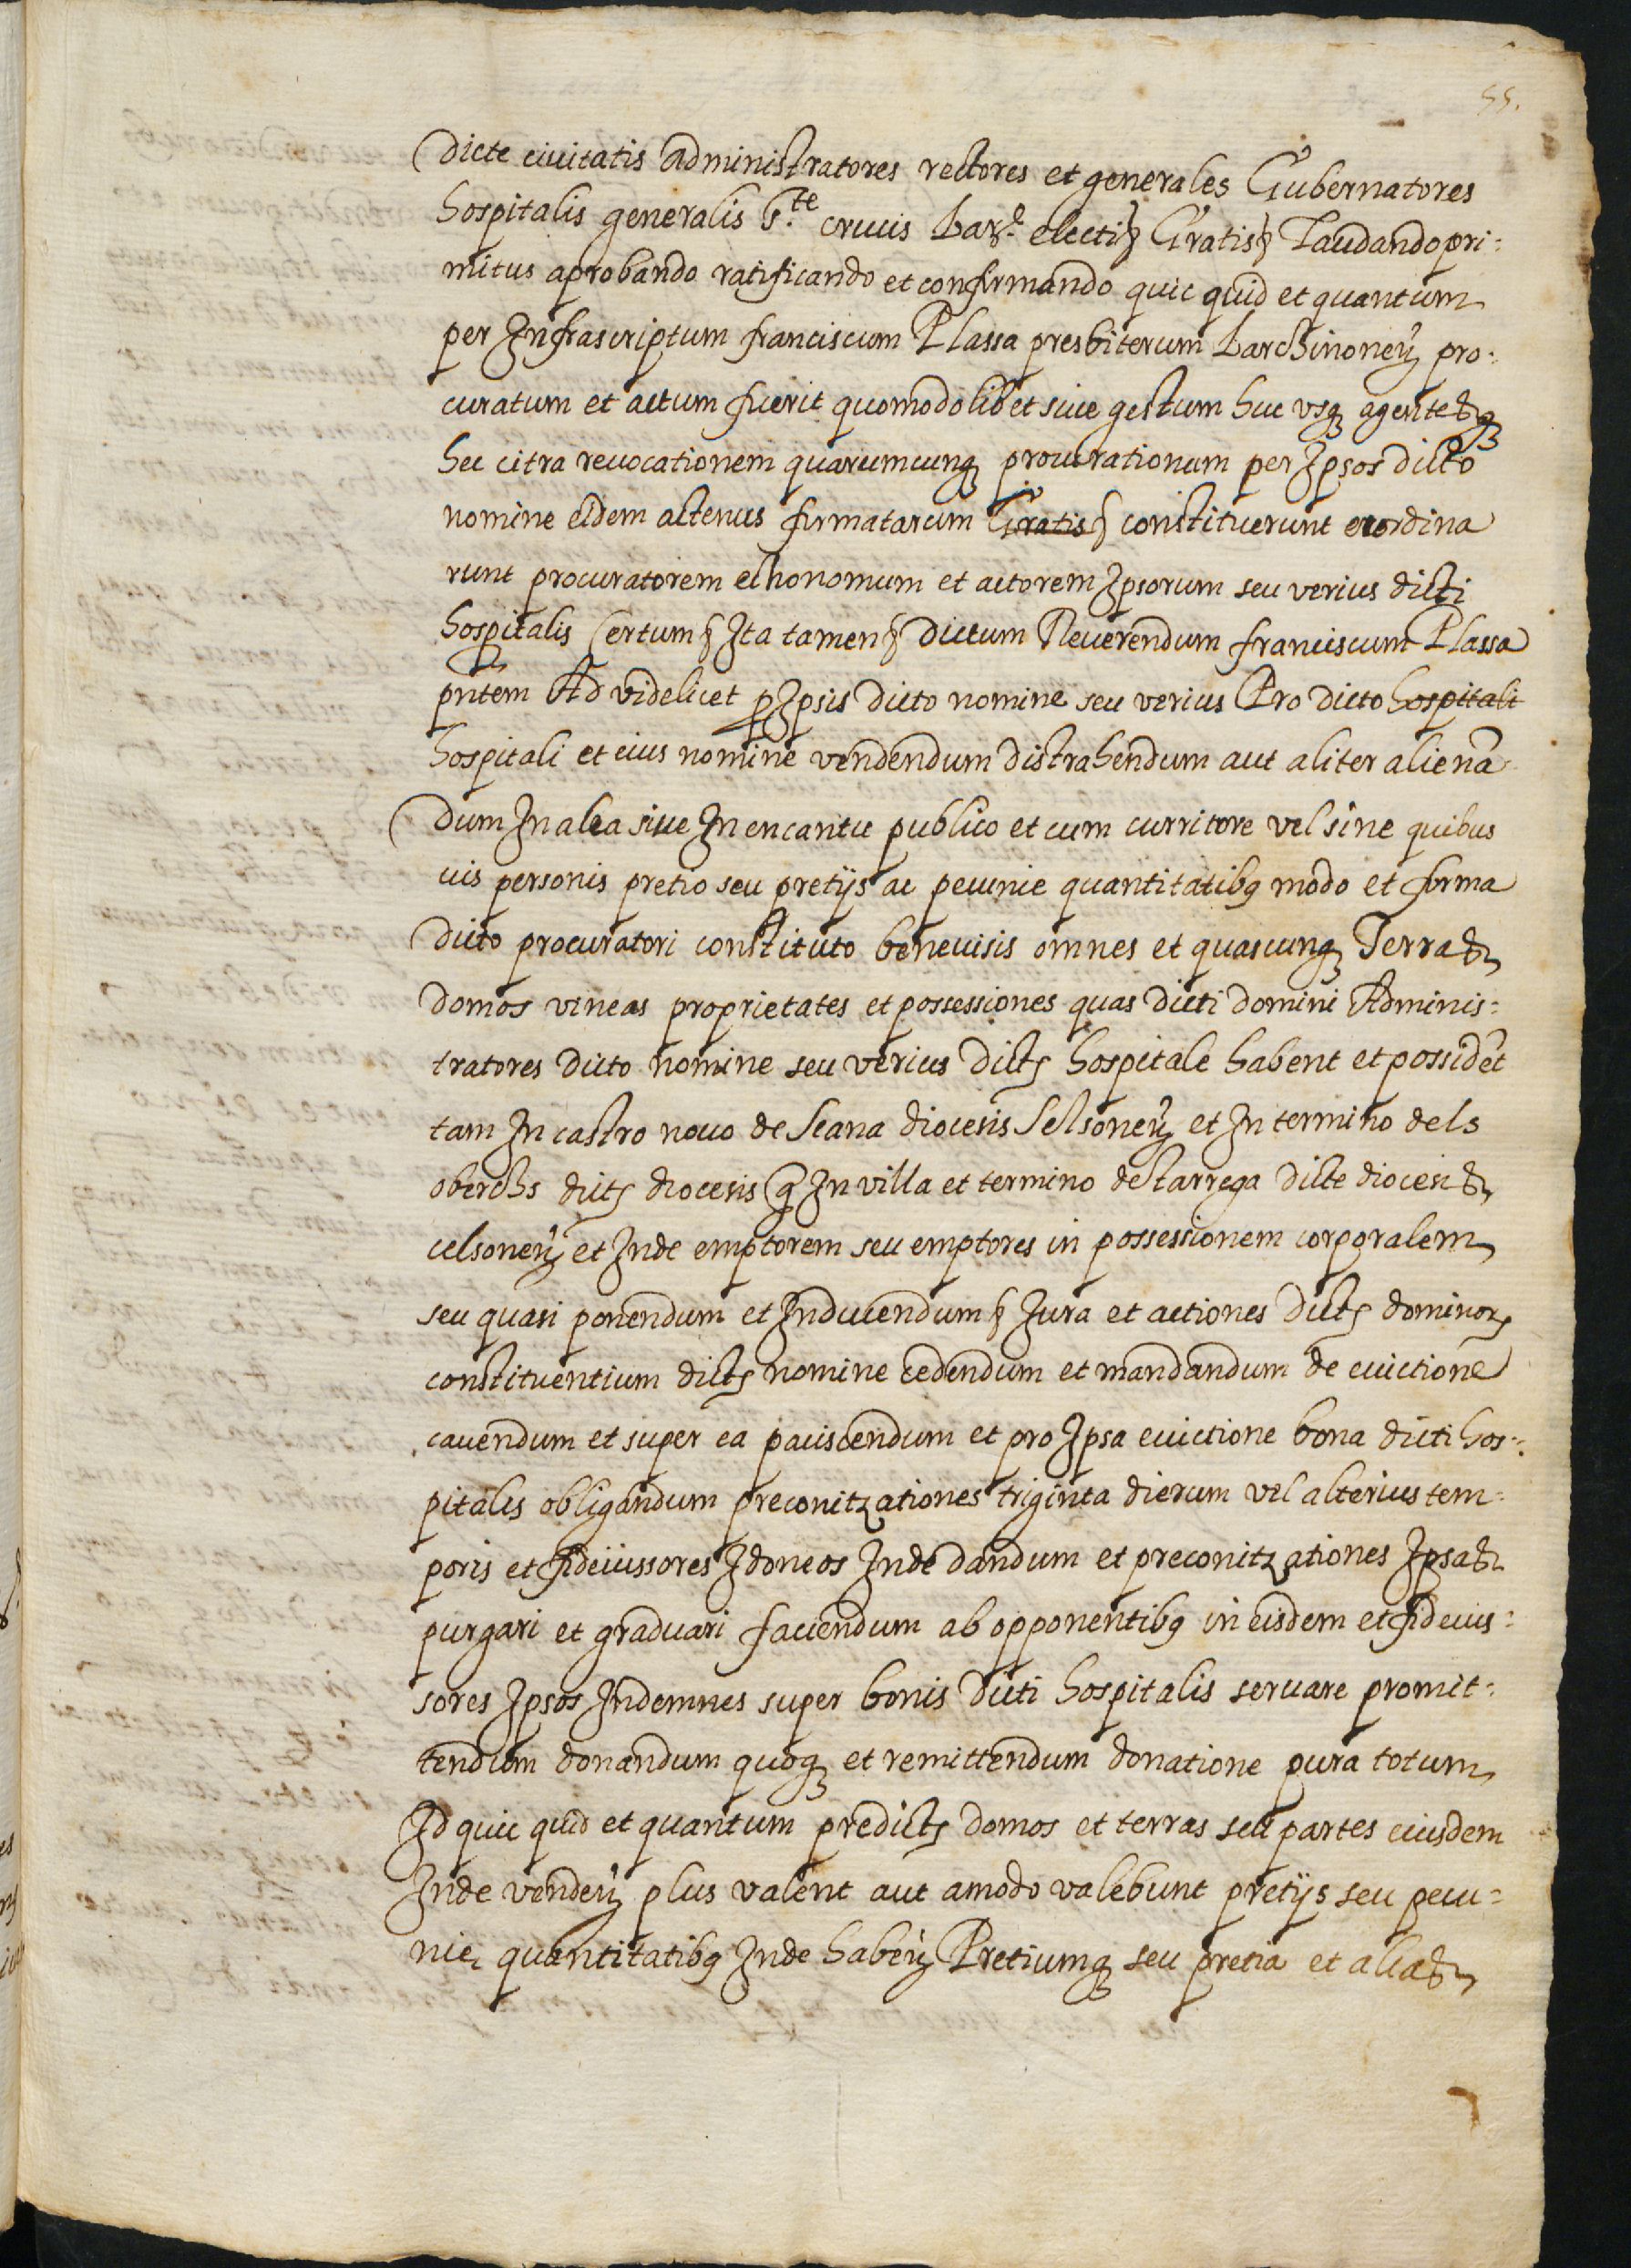 55.
dicte ciuitatis Administratores rectores et generales Gubernatores
hospitalis generalis S.te crucis Bar.e electi§ Gratis§ Laudando pri-
mitus aprobando ratificando et confirmando quic quid et quantum
per Infrascriptum franciscum Plassa presbiterum Barchinoneñ pro-
curatum et actum fuerit quomodolibet siue gestum huc vsq agentes
hec citra reuocationem quarumcunq procurationum per Ipsos dicto
nomine eidem actenus firmatarum Gratis§ constituerunt et ordina
runt procuratorem echonomum et actorem Ipsorum seu verius dicti
hospitalis Certum§ Ita tamen§ dictum Reuerendum franciscum Plassa
pñtem Ad videlicet p Ipsis dicto nomine seu verius Pro dicto hospitali
hospitali et eius nomine vendendum distrahendum aut aliter alienã
dum In alea siue In encantu publico et cum curritore vel sine quibus
uis personis pretio seu pretijs ac pecunie quantitatibq modo et forma
dicto procuratori constituto beneuisis omnes et quascunq Terras
domos vineas proprietates et possessiones quas dicti domini Adminis-
tratores dicto nomine seu verius dicts hospitale habent et possidẽt
tam In castro nouo de Seana diocesis Selsoneñ et In termino dels
oberchs dicts diocesis q In villa et termino de tarrega dicte diocesis
celsoneñ et Inde emptorem seu emptores in possessionem corporalem
seu quasi ponendum et Inducendum§ Iura et actiones dicts dominors
constituentium dicts nomine cedendum et mandandum de euictione
cauendum et super ea paciscendum et pro Ipsa euictione bona dicti hos-
pitalis obligandum preconitzationes triginta dierum vel alterius tem-
poris et fideiussores Idoneos Inde dandum et preconitzationes Ipsas
purgari et graduari faciendum ab opponentibq in eisdem et fideius-
sores Ipsos Indemnes super bonis dicti hospitalis seruare promit-
tendum donandum quoq et remittendum donatione pura totum
Id quic quid et quantum predicts domos et terras seu partes eiusdem
Inde vendeñ plus valent aut amodo valebunt pretijs seu pecu-
nie quantitatibq Inde habeñ Pretiumq seu pretia et alias